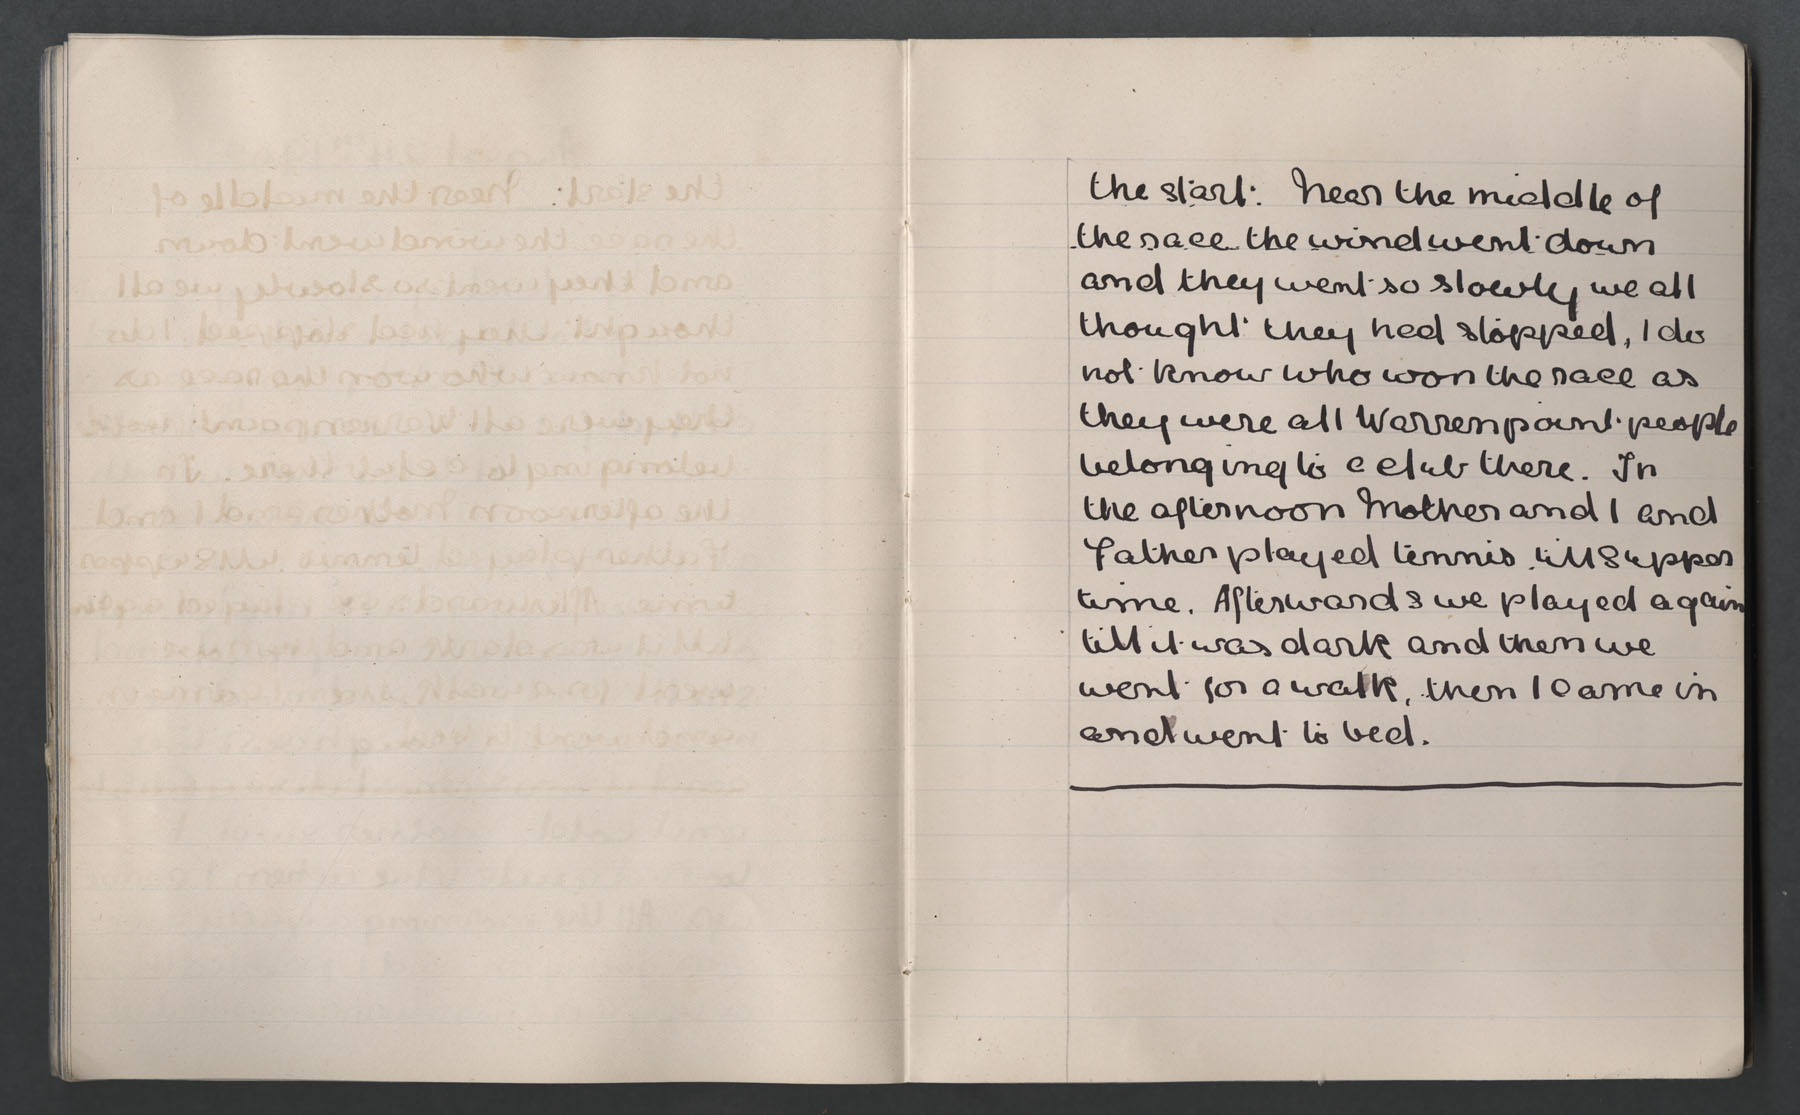 the start. Near the middle of
the race the wind went down
and they went so slowly we all
thought they had stopped, I do
not know who won the race as
they were all Warrenpoint people
belonging to a club there. In
the afternoon Mother and I and
Father played tennis till supper
time. Afterwards we played again
till it was dark and then we
went for a walk, then I came in
and went to bed.